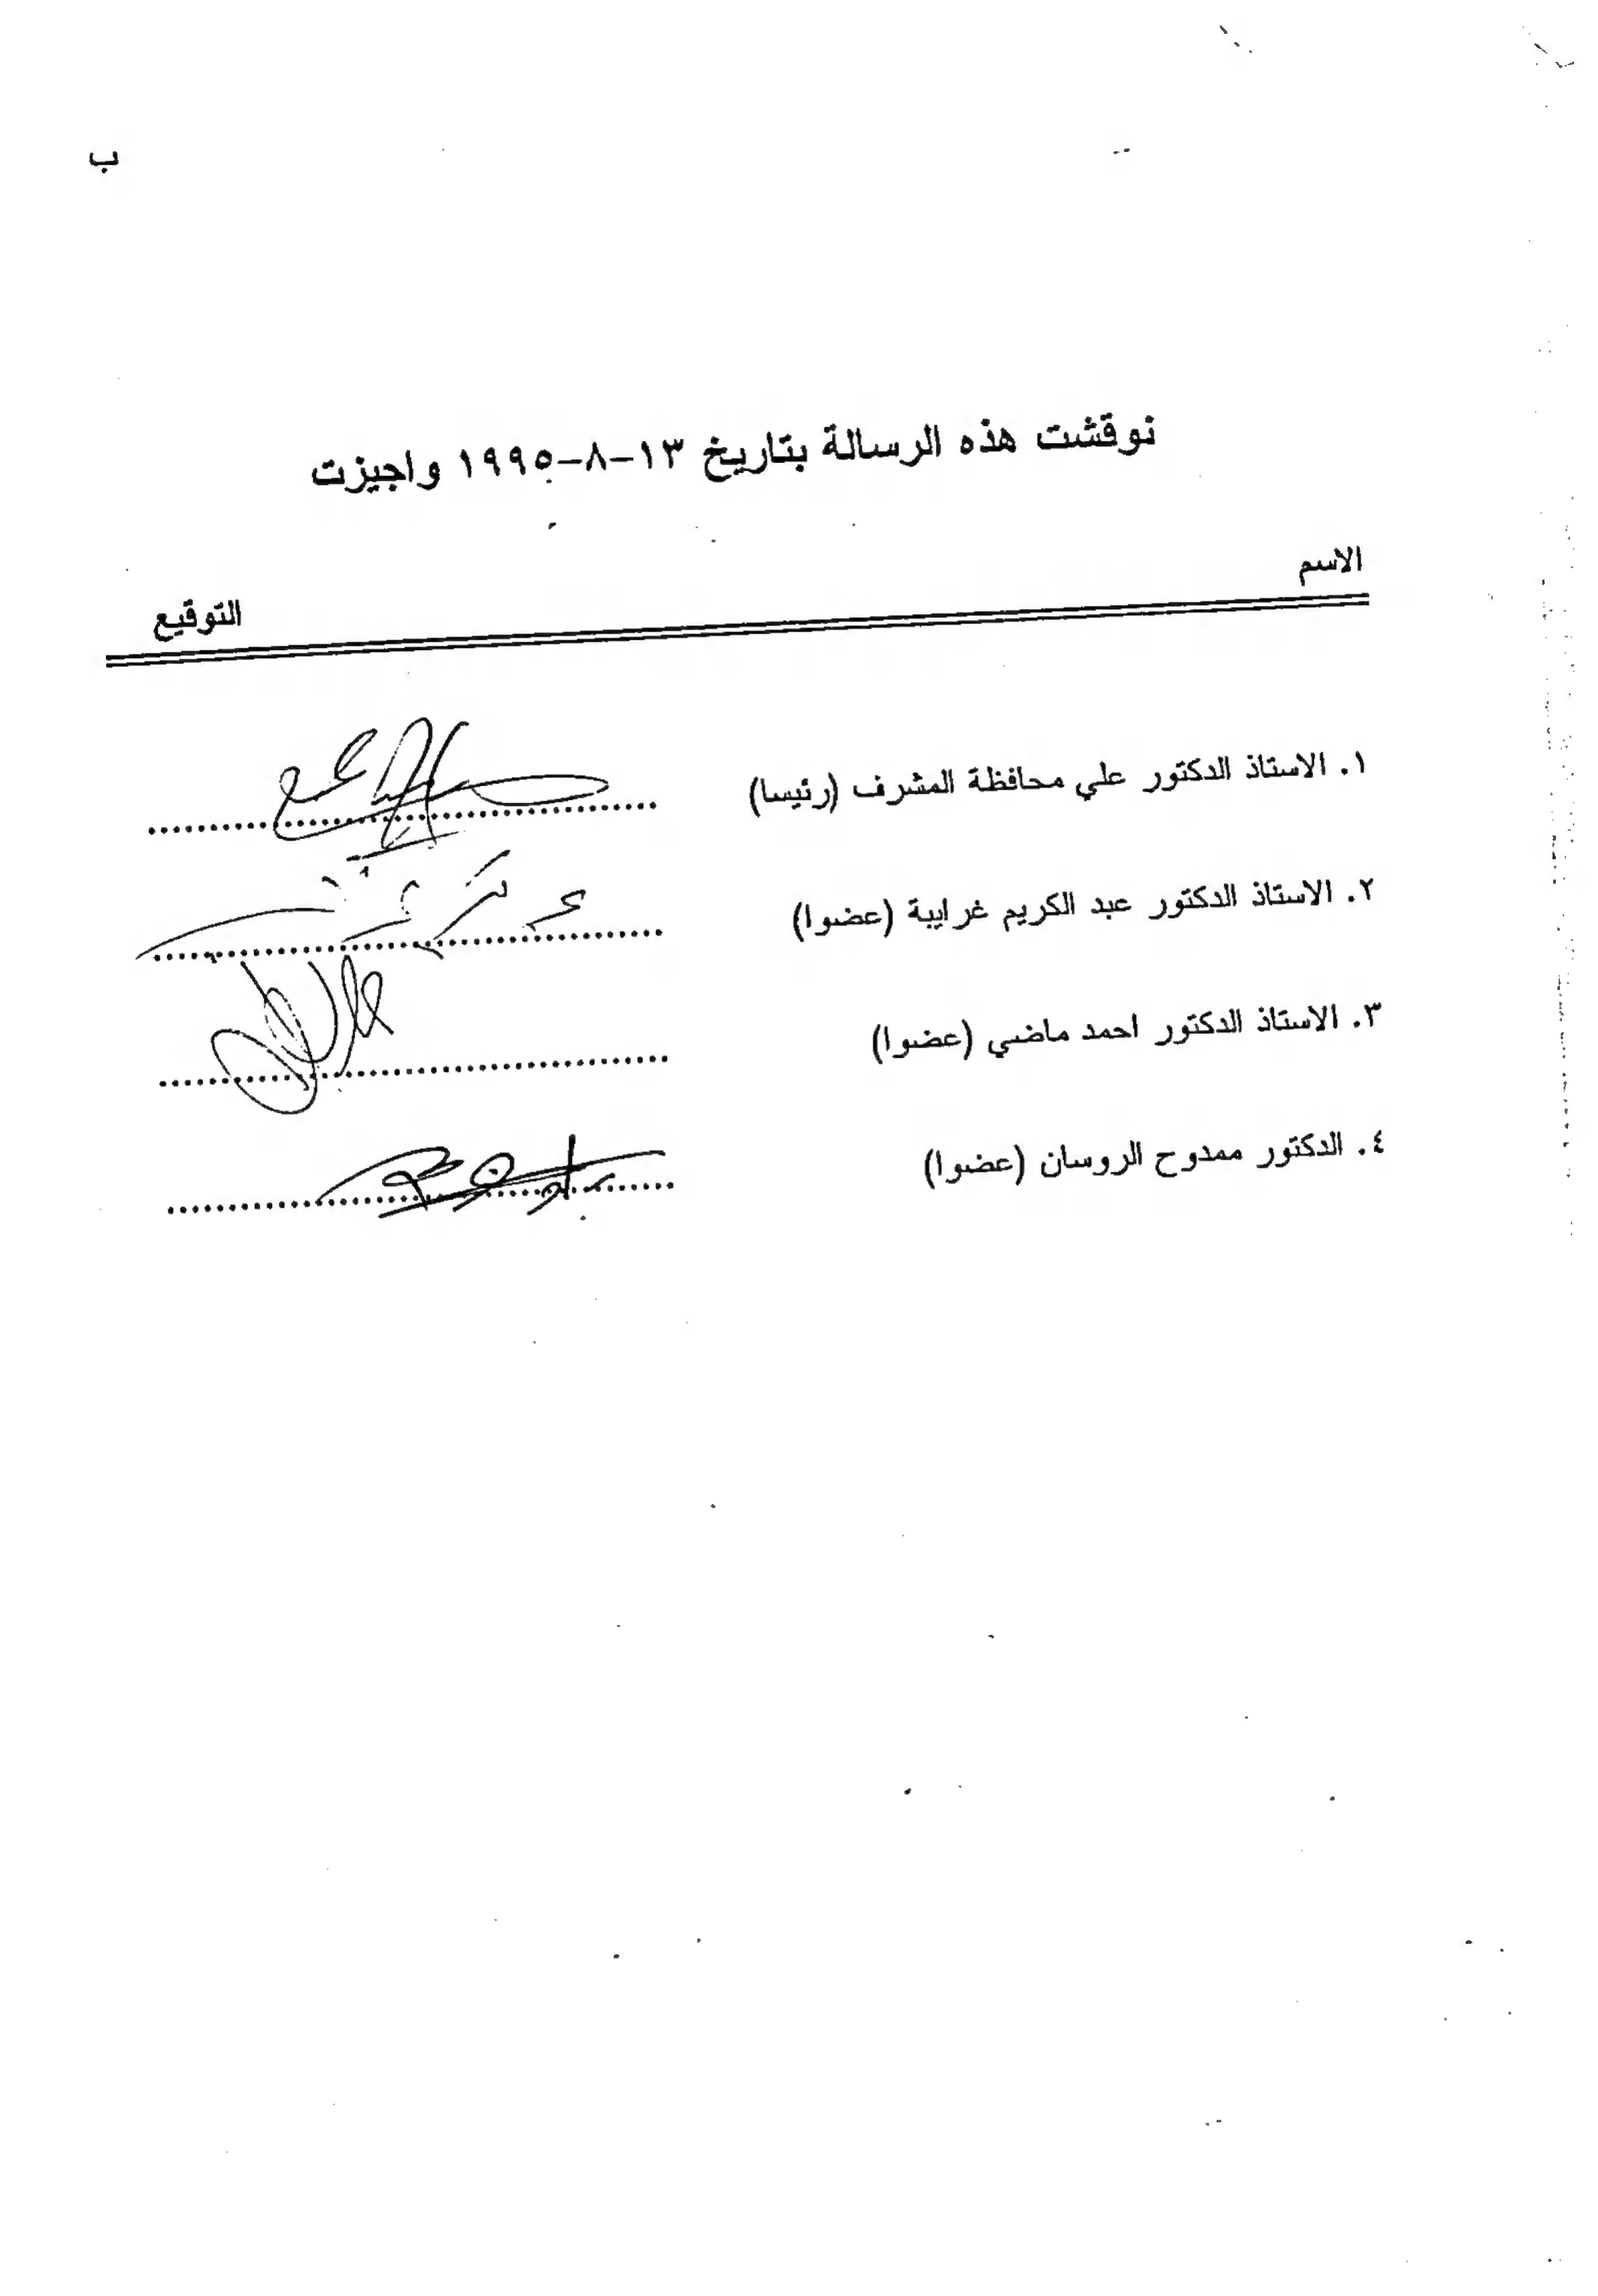 ب
نوقشت هذه الرسالة بتاريخ ١٣-٨-١٩٩٥ واجيزت
الاسم
التوقيع
١. الاستاذ الدكتور علي محافظة المشرف (رئيسا)
٢. الاستاذ الدكتور عبد الكريم غرايبة (عضوا)
٣. الاستاذ الدكتور احمد ماضي (عضوا)
٤. الدكتور ممدوح الروسان (عضوا)